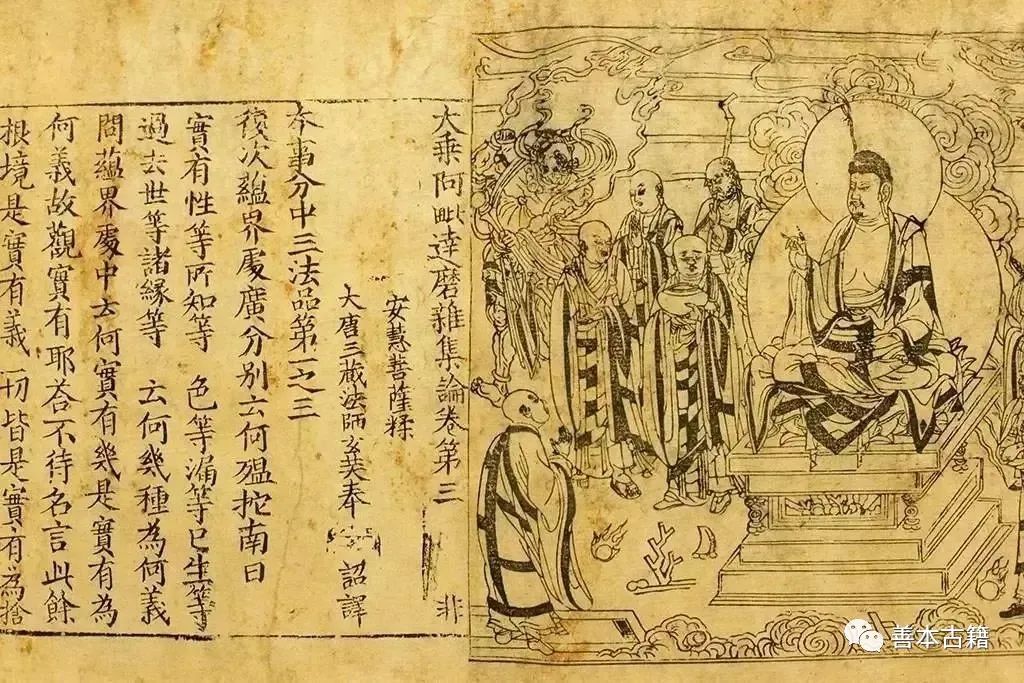 大乘阿毗達磨雜集論卷第三 非
安慧菩薩糅
大唐三藏法師玄奘奉 詔譯
本事分中三法品第一之三
復次蘊界處廣分別云何嗢拕南曰
實有性等所知等 色等漏等已生等
過去世等諸緣等 云何幾種為何義
問蘊界處中云何實有幾是實有為
何義故觀實有耶荅不待名言此餘
根境是實有義一切皆是實有為捨
善本古籍